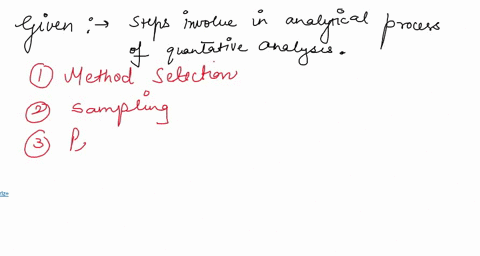 Given :→ Steps involve in analytical process
of quantative analysis.
① Method Selection
② Sampling
③ P